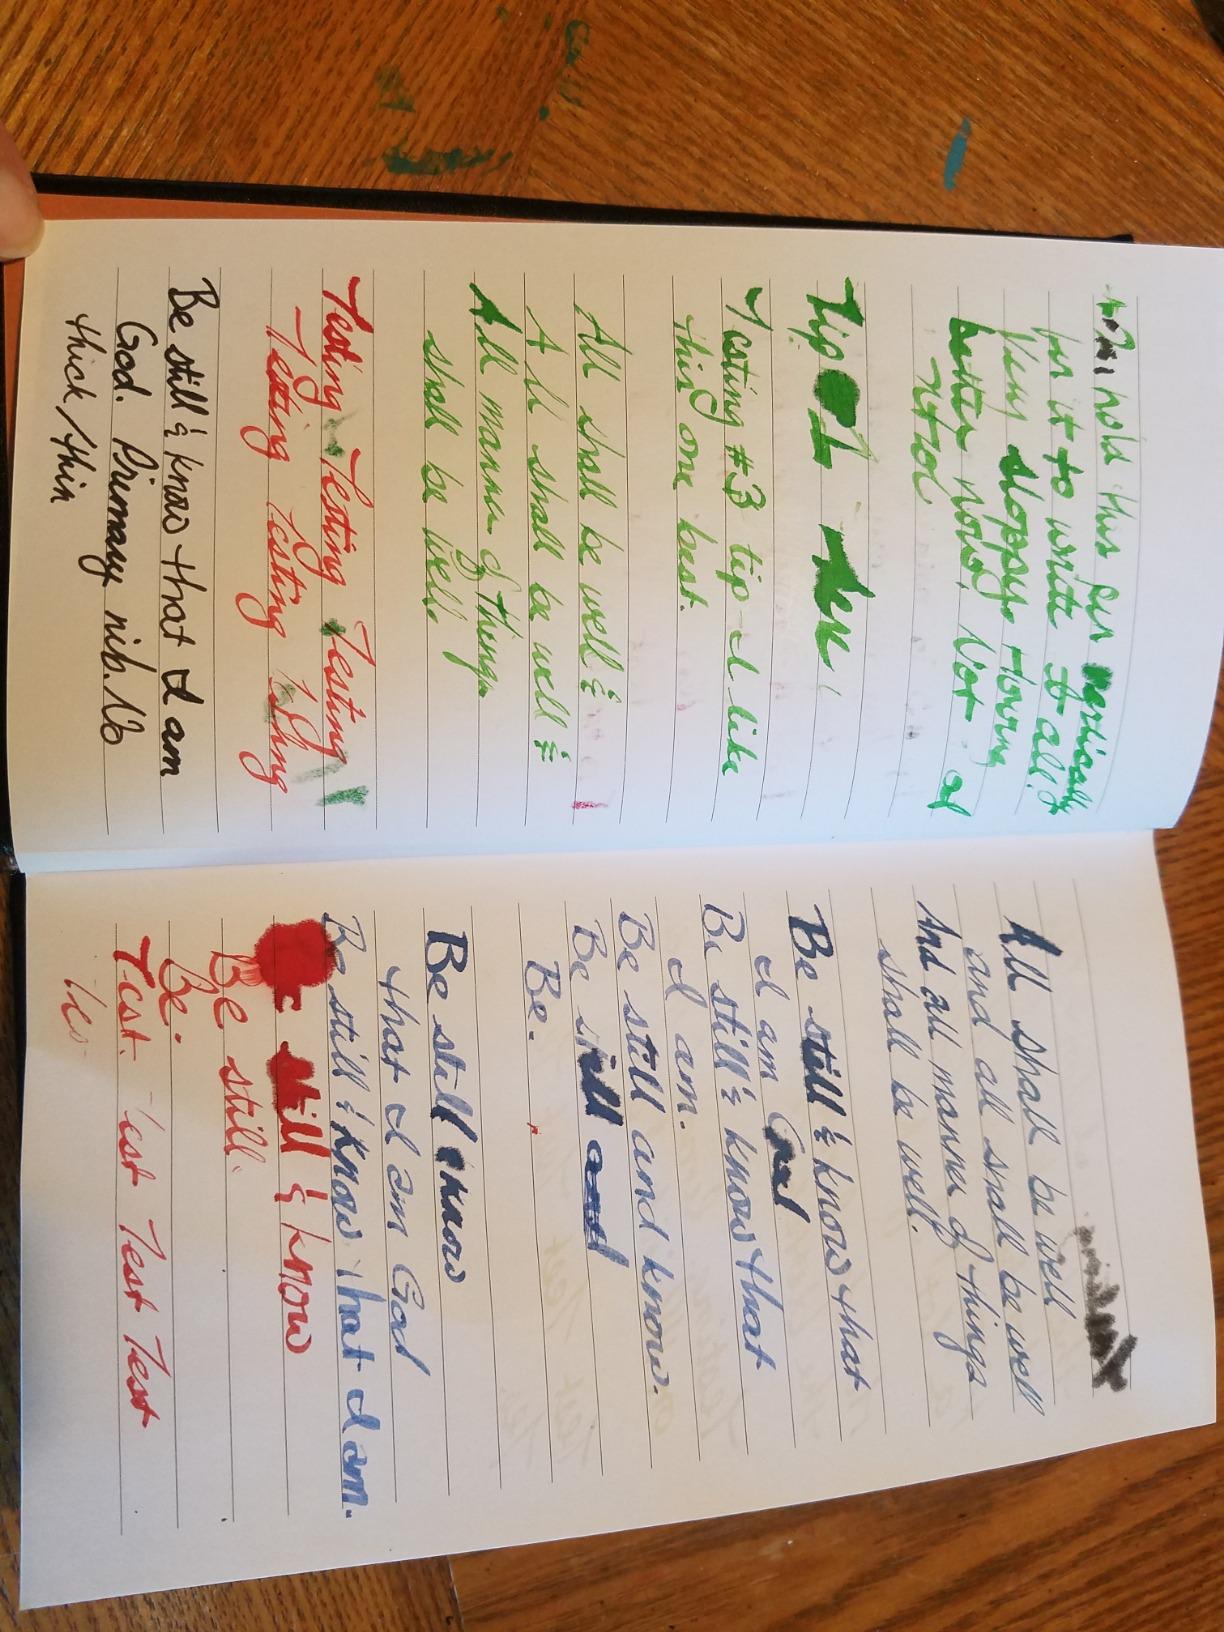 hold this pen vertically
for it to write at all! &
Very sloppy. Flowing
better now. Not at
Tip
Testing #3 tip - I like
this one best.
All shall be well &
All shall be well &
All manner of things
shall be well
Testing Testing Testing
Testing Testing Testing
Be still & know that I am
God. Primary nib. No
thick/thin
All shall be well
and all shall be well
And all manner of things
shall be well.
Be still & know that
I am God
Be still & know that
I am.
Be still and know.
Be still and
Be.
Be still & know
that I am God
Be still & know that I am.
still & know
Be still.
Be.
Test. Test Test Test